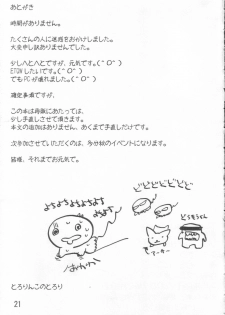 あとがき
時間がありません。
たくさんの人に迷惑をおかけしました。
大変申し訳ありませんでした。
少しへとへとですが、元気です。(^O^)
でもPCが壊れました。(^O^)
確定事項ですが、
この本は再販にあたっては、
少し手直しさせて頂きます。
本文の追加はありません、あくまで手直しだけです。
次参加させていただくのは、多分秋のイベントになります。
皆様、それまでお元気で。
よちよちよちよちよち
どどどどどどど
とろりんこのとろり
21